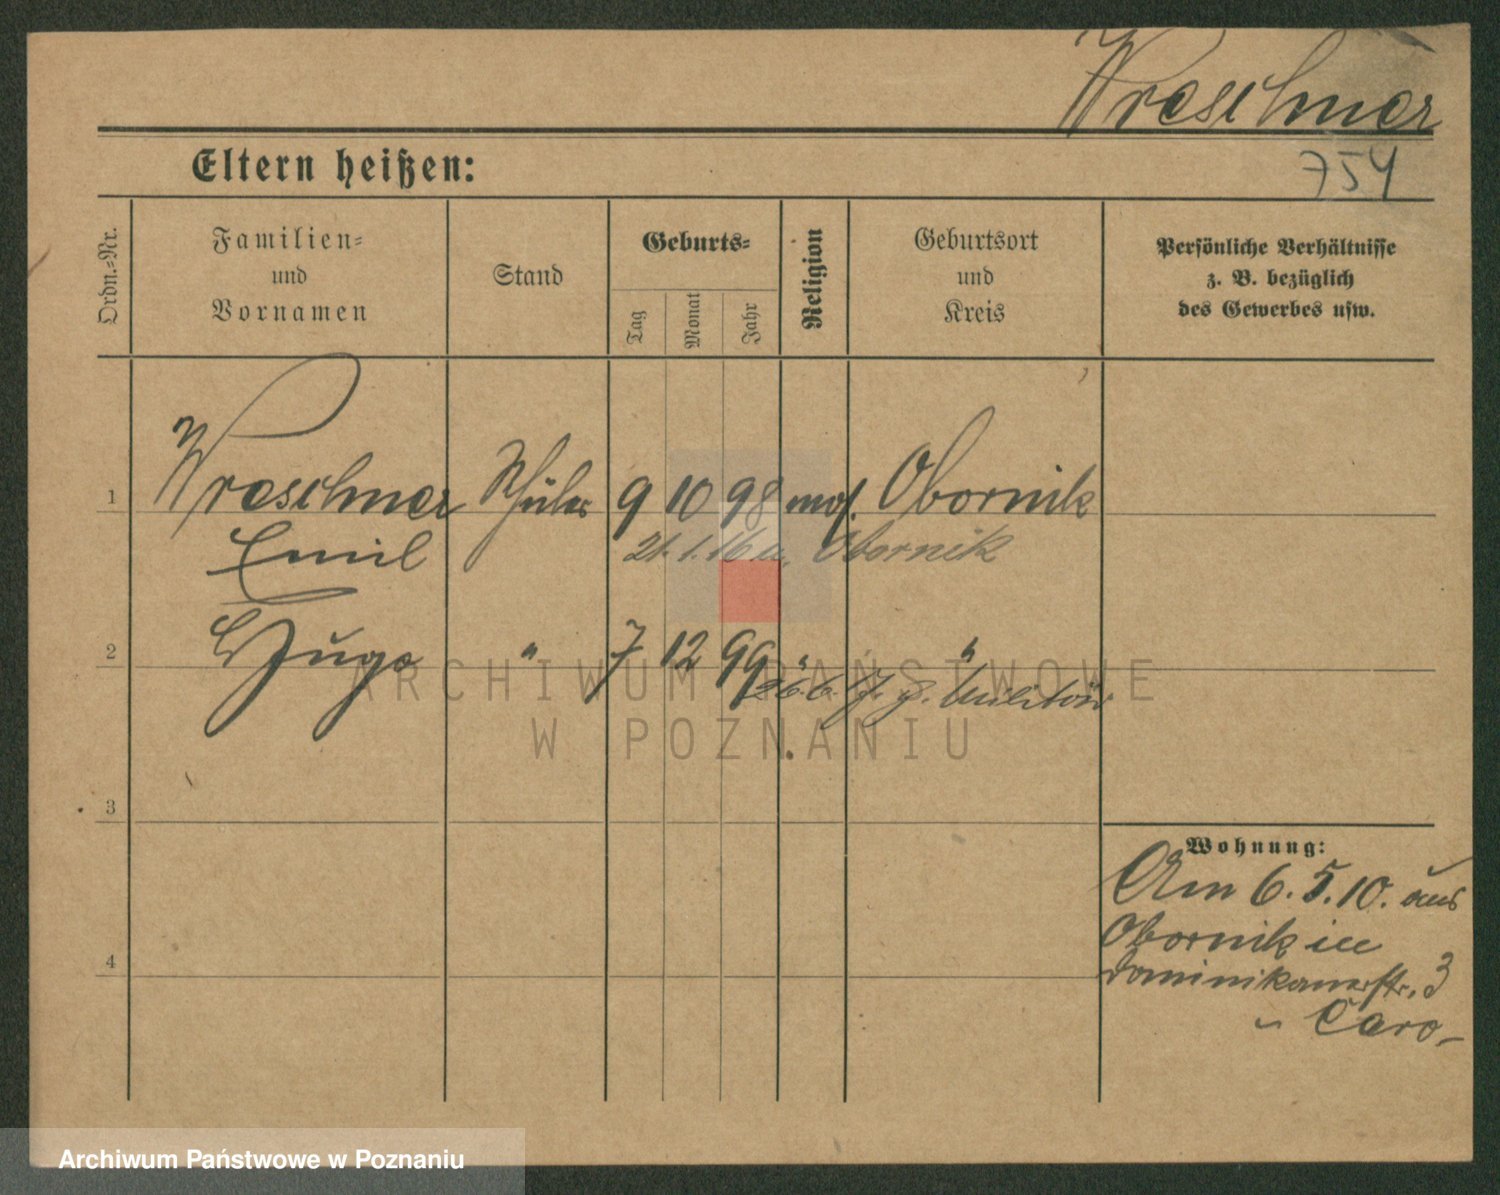 Wreschner
Eltern heißen:
754
Ordn.-Nr.
Familien-
und
Vornamen
Stand
Geburts-
Tag
Monat
Jahr
Religion
Geburtsort
und
Kreis
Persönliche Verhältnisse
z. B. bezüglich
des Gewerbes usw.
1 Wreschner Schüler 9 10 98 mos. Obornik
Emil 21.1.16 n. Obornik
2 Hugo " 7 12 99 " "
26.6.17. z. Militär
3
Wohnung:
Am 6.5.10. aus
Obornik in
4
Dominikanerstr. 3
Caro
ARCHIWUM PAŃSTWOWE
W POZNANIU
Archiwum Państwowe w Poznaniu